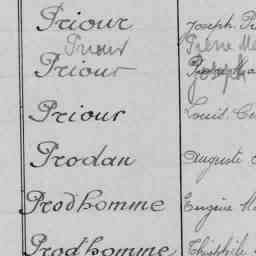 Priour Joseph
Priour Pierre
Priour Joseph
Priour Louis
Prodan Auguste
Prodhomme Eugène
Prodhomme